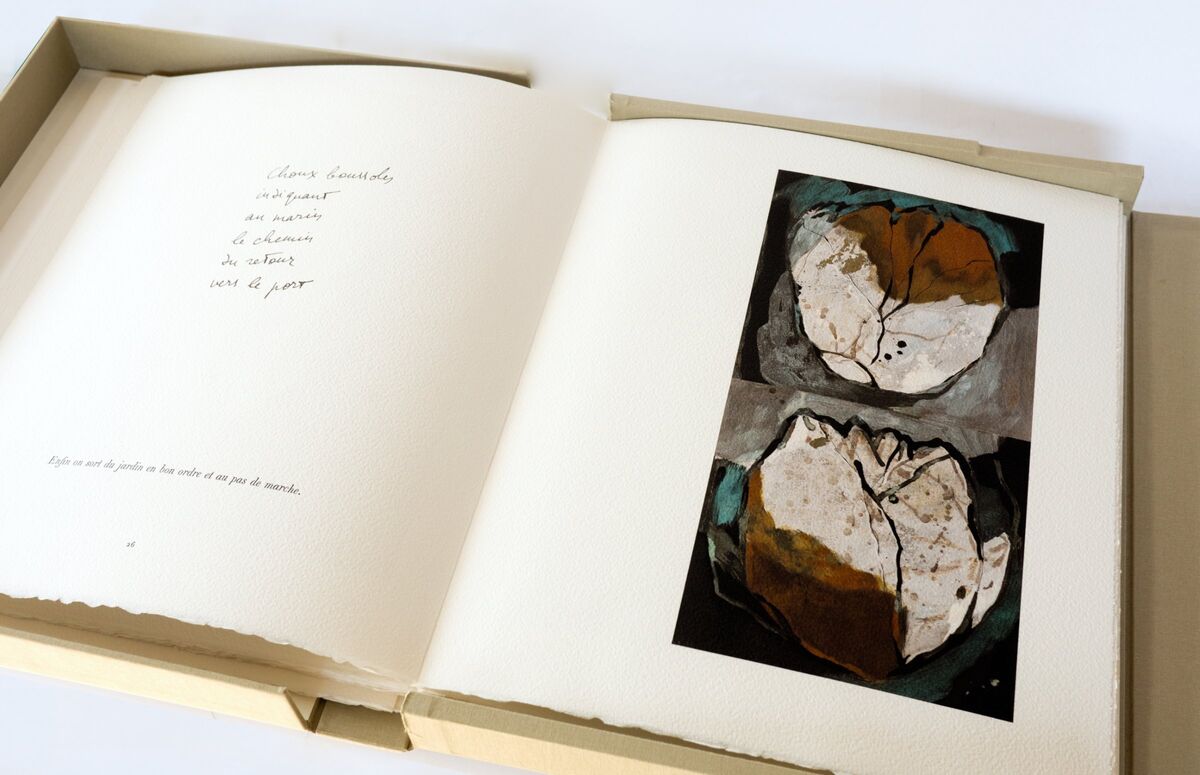 choux boussoles
indiquant
au marin
le chemin
du retour
vers le port
Enfin on sort du jardin en bon ordre et au pas de marche.
26